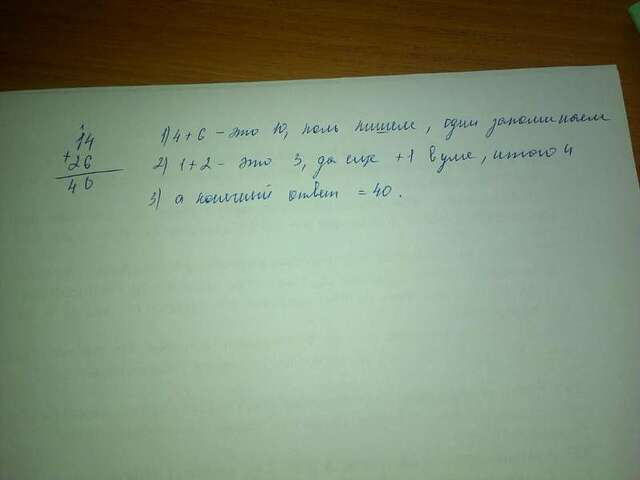 1
14
+
26
40
1) 4+6 - это 10, ноль пишем, один запоминаем
2) 1+2 - это 3, да еще +1 в уме, итого 4
3) а полный ответ = 40.